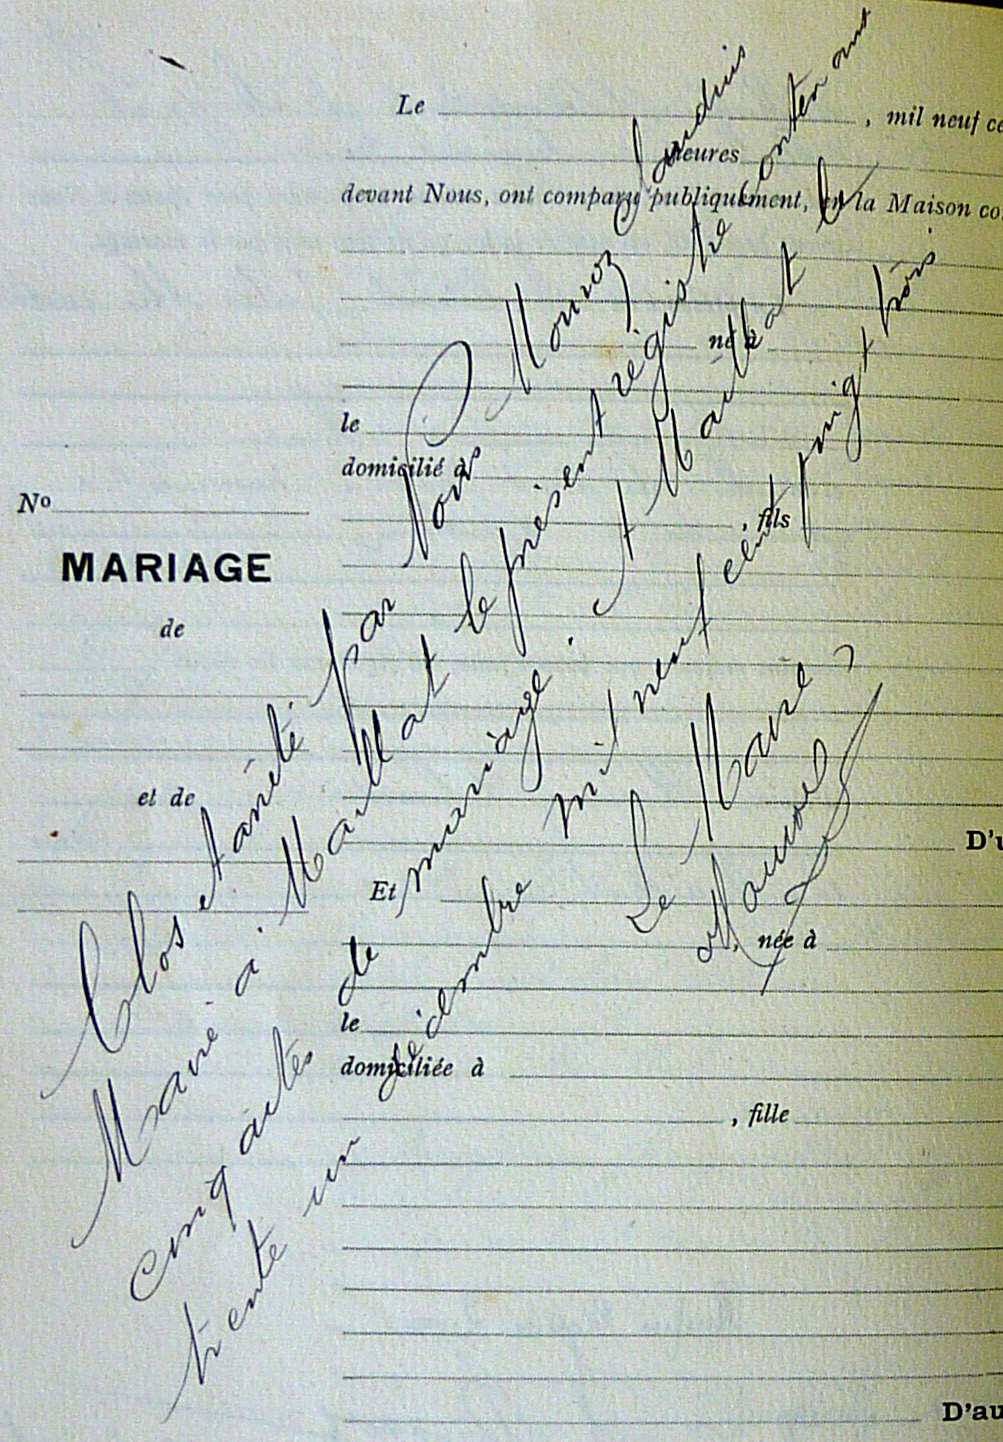 Le , mil neuf ce
heures
devant Nous, ont comparu publiquement, en la Maison co
né à
le
domicilié à
No
, fils
MARIAGE
de
et de
D'u
Et
, née à
le
domiciliée à
, fille
D'au
Clos et arrêté par Nous
Maire à Maillat le présent régistre contenant
cinq actes de mariage. A Maillat le
trente un décembre mil neuf cent vingt trois.
Le Maire